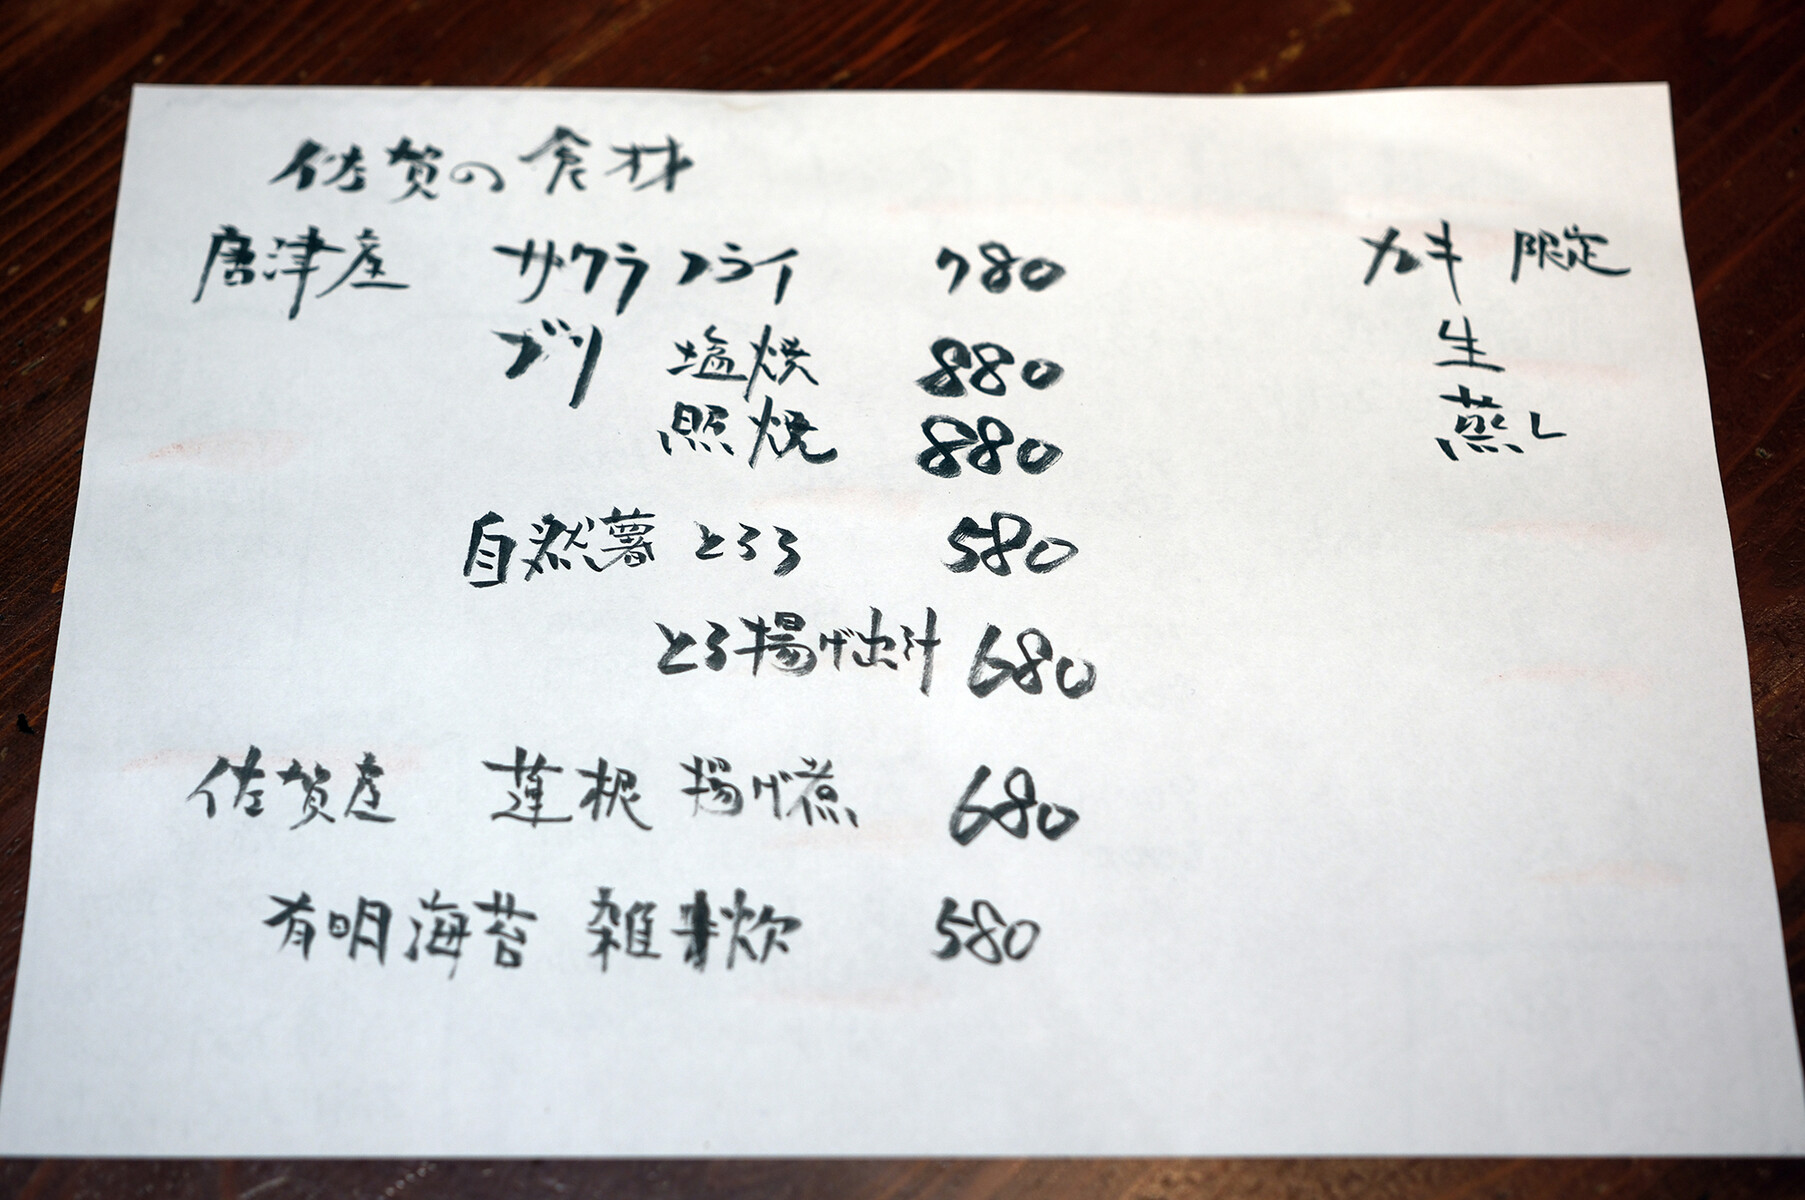 佐賀の食材
唐津産 サクラフライ 780
ブリ 塩焼 880
照焼 880
自然薯 とろろ 580
とろ揚げ出汁 680
佐賀産 蓮根 揚げ煮 680
有明海苔 雑炊 580
カキ 限定
生
蒸し